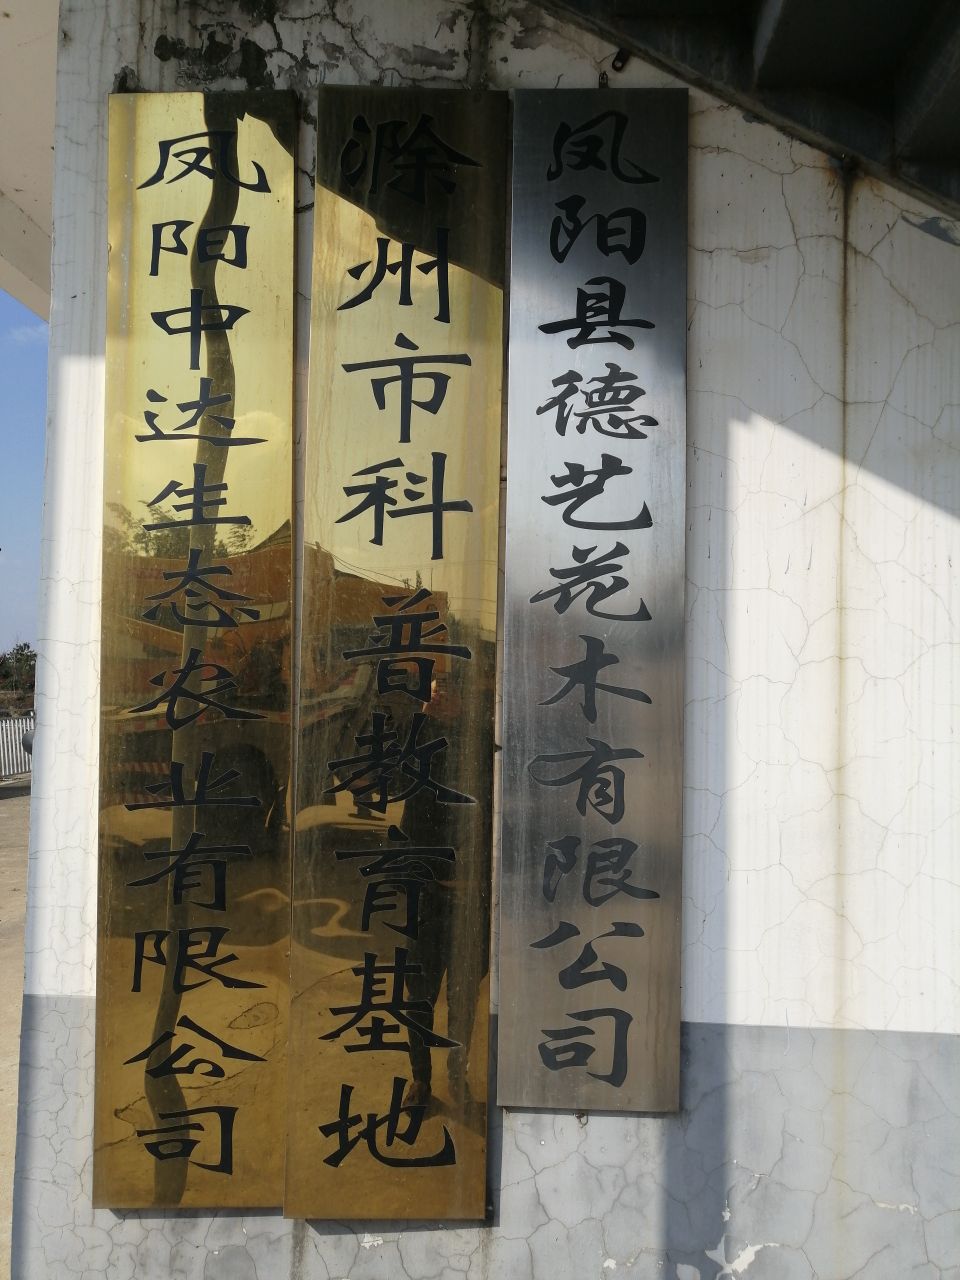 凤阳中达生态农业有限公司
滁州市科普教育基地
凤阳县德艺花木有限公司